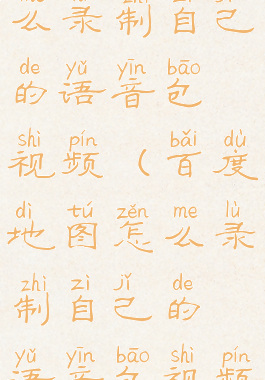 me lù zhì zì jǐ
么录制自己
de yǔ yīn bāo
的语音包
shì pín bǎi dù
视频（百度
dì tú zěn me lù
地图怎么录
zhì zì jǐ de
制自己的
yǔ yīn bāo shì pín
语音包视频